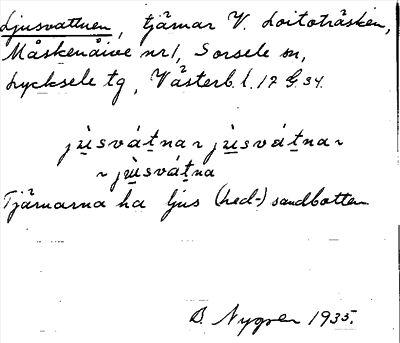 Ljusvattnen, tjärnar V. Loitoträsken,
Måskenåive nr 1, Sorsele sn,
Lycksele tg, Västerb. l. 17 G. 34.
jùsvátnar jùsvátnar
jùsvátna
Tjärnarna ha ljus (hed-) sandbotten
B. Nygren 1935.